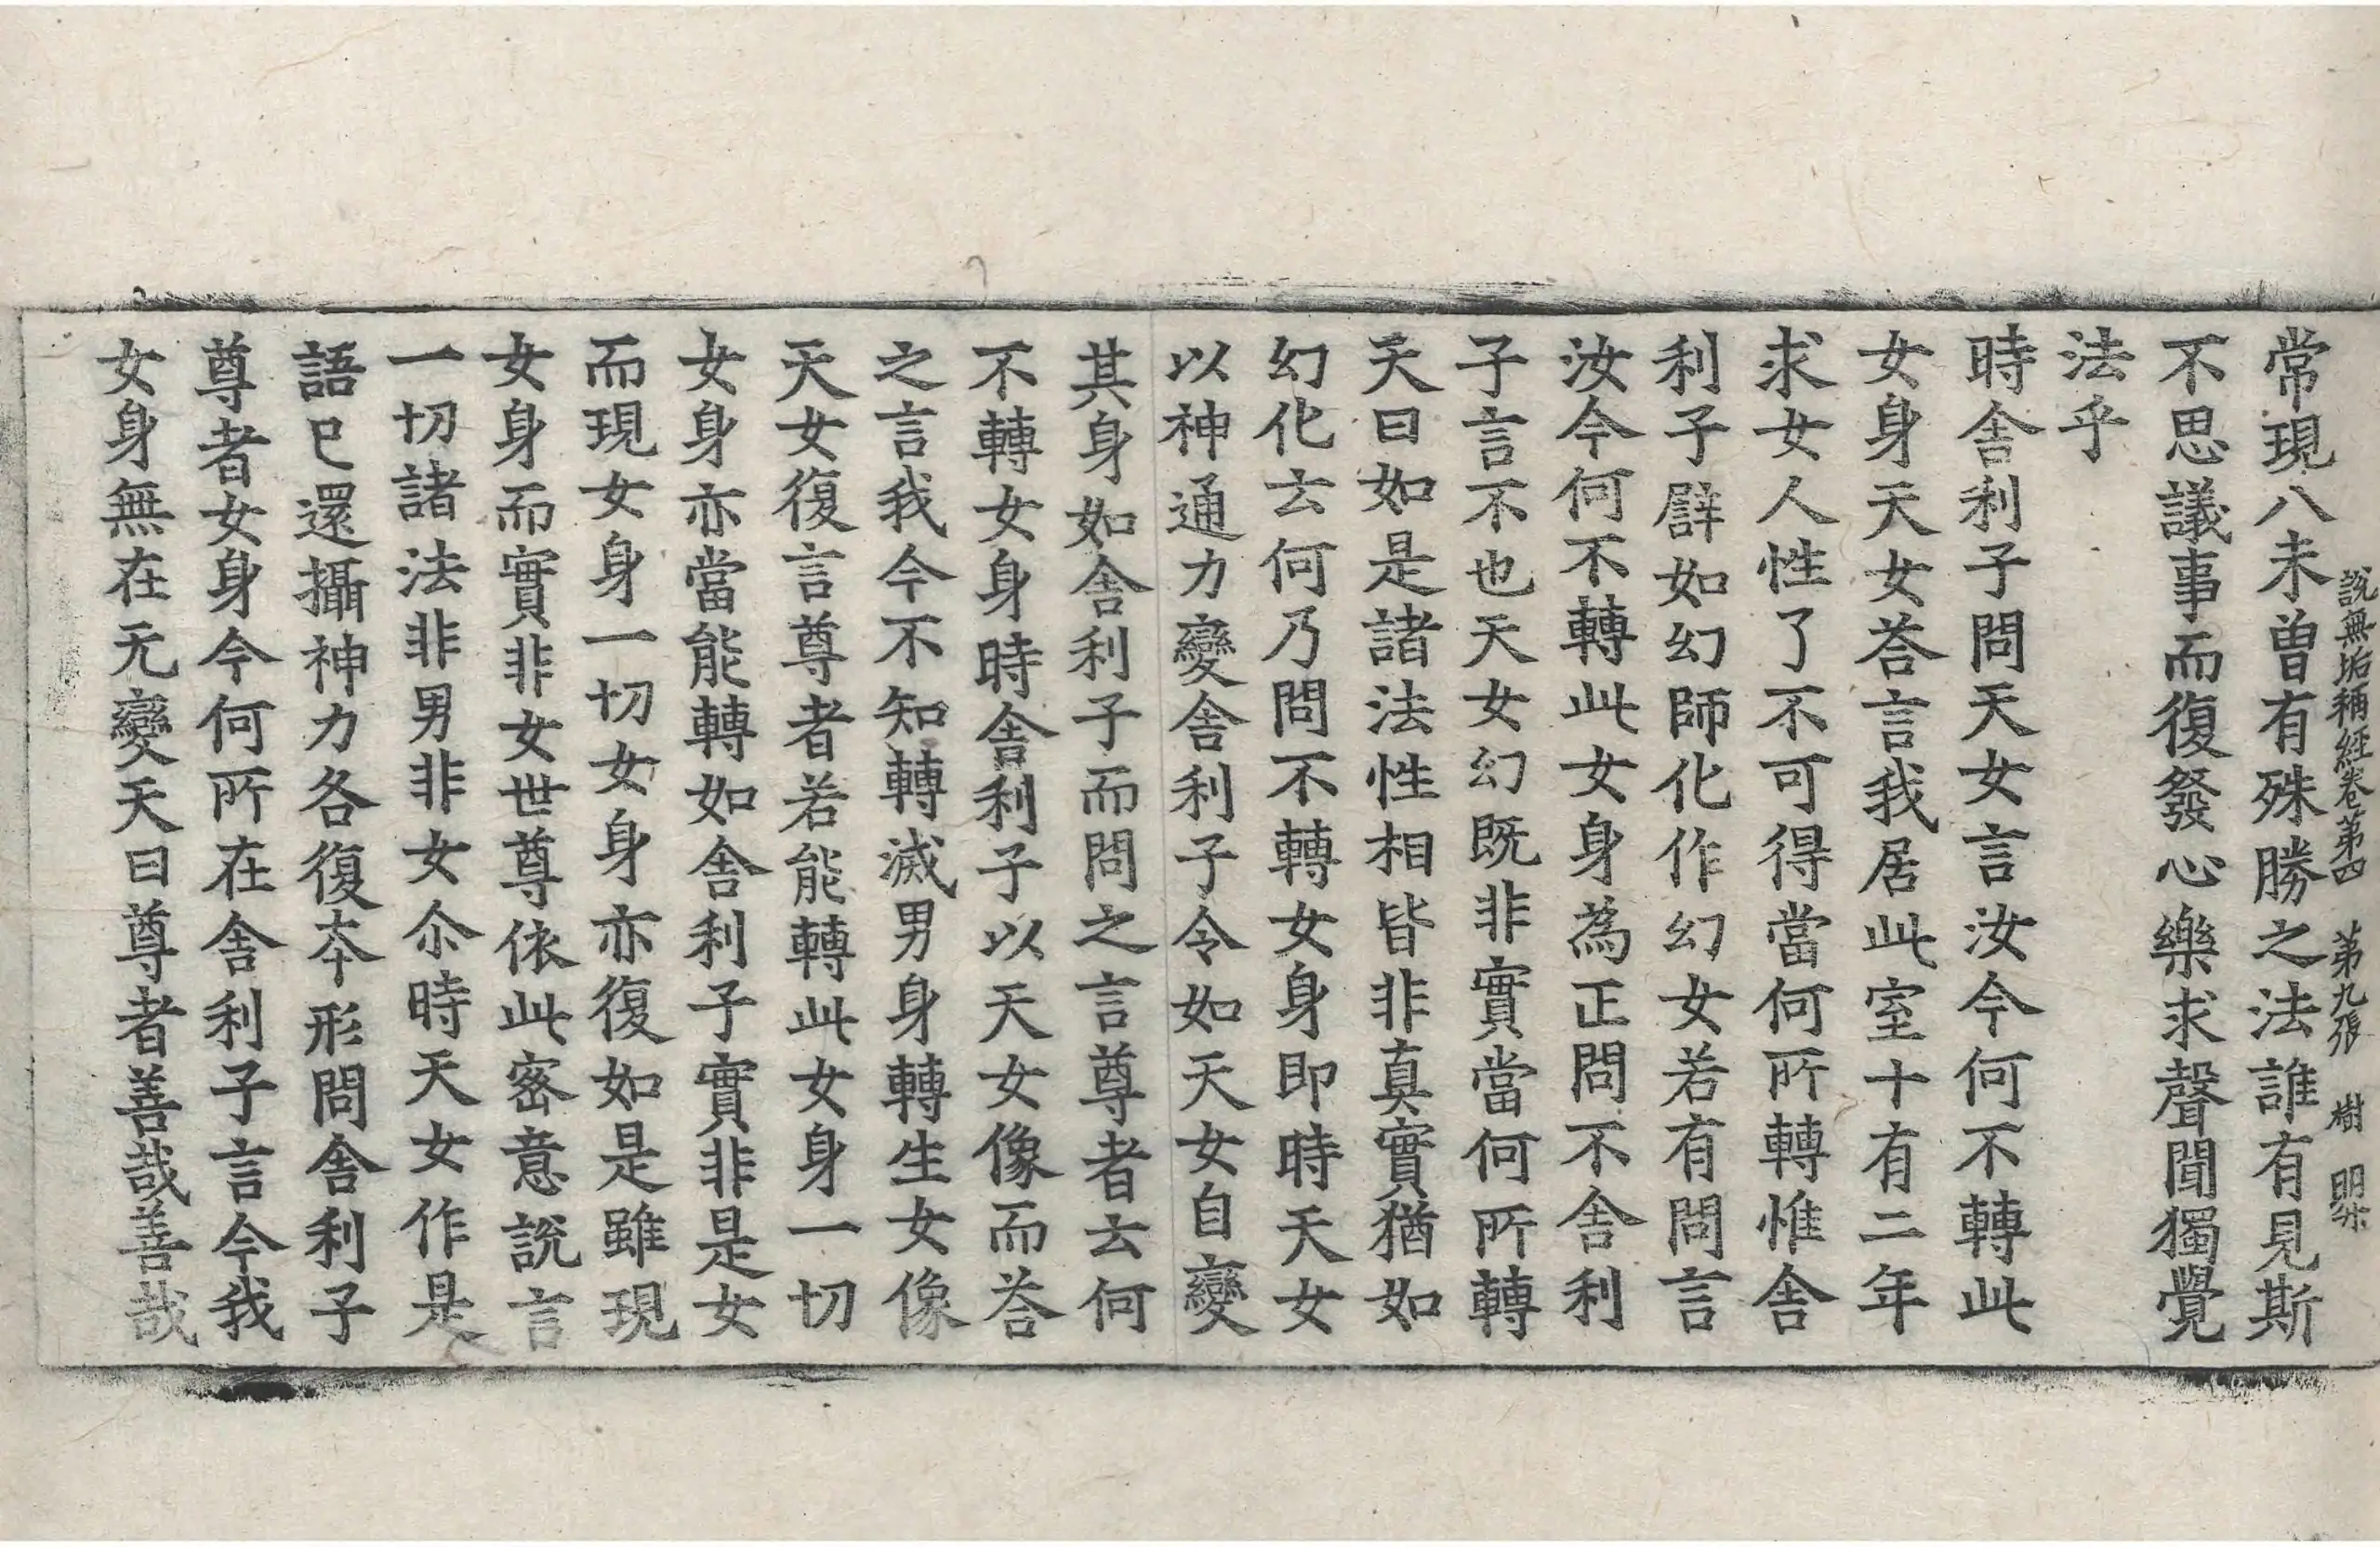 說無垢稱經卷第四 第九張 樹 明
常現八未曽有殊勝之法誰有見斯
不思議事而復發心樂求聲聞獨覺
法乎
時舍利子問天女言汝今何不轉此
女身天女荅言我居此室十有二年
求女人性了不可得當何所轉惟舍
利子譬如幻師化作幻女若有問言
汝今何不轉此女身為正問不舍利
子言不也天女幻既非實當何所轉
天曰如是諸法性相皆非真實猶如
幻化云何乃問不轉女身即時天女
以神通力變舍利子令如天女自變
其身如舍利子而問之言尊者云何
不轉女身時舍利子以天女像而荅
之言我今不知轉滅男身轉生女像
天女復言尊者若能轉此女身一切
女身亦當能轉如舍利子實非是女
而現女身一切女身亦復如是雖現
女身而實非女世尊依此密意說言
一切諸法非男非女尒時天女作是
語已還攝神力各復夲形問舍利子
尊者女身今何所在舍利子言今我
女身無在无變天曰尊者善哉善哉